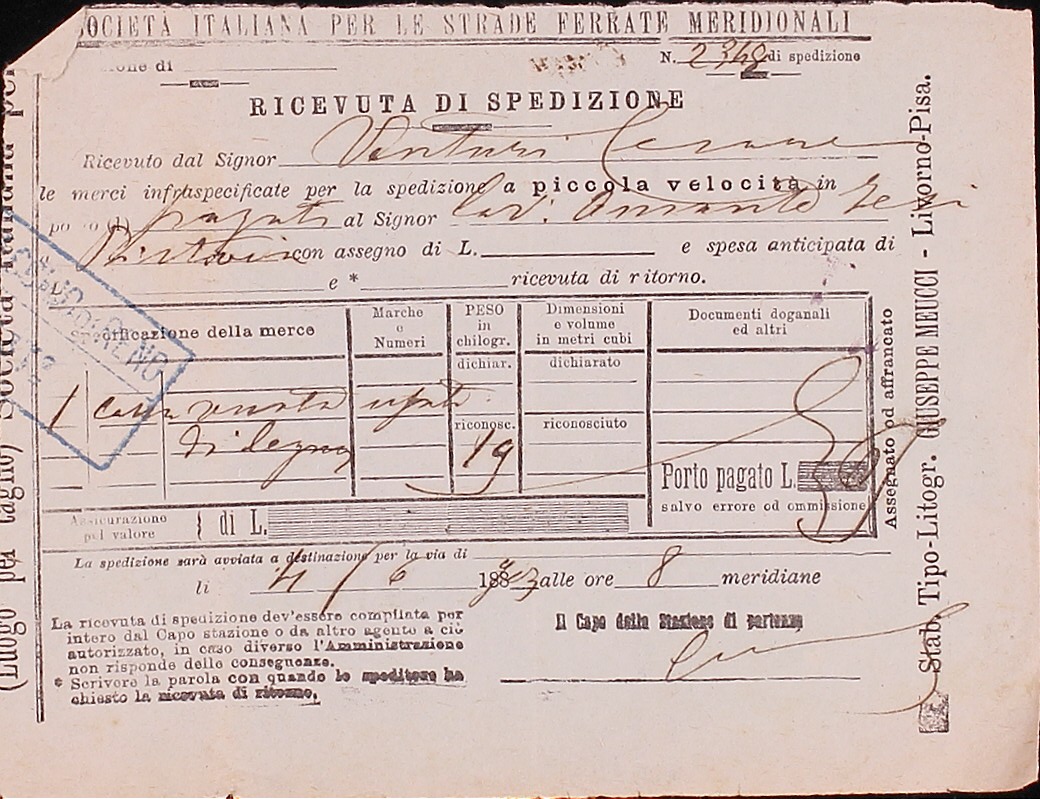 SOCIETÀ ITALIANA PER LE STRADE FERRATE MERIDIONALI
ione di
N. 2348 di spedizione
RICEVUTA DI SPEDIZIONE
Ricevuto dal Signor Venturi Cesare
le merci infraspecificate per la spedizione a piccola velocità in
po to (1) pagato al Signor Cav. Amante
con assegno di L. e spesa anticipata di
L. e * ricevuta di ritorno.
Specificazione della merce
Marche e Numeri
PESO in chilogr.
Dimensioni e volume in metri cubi
Documenti doganali ed altri
dichiar.
dichiarato
1 cassa vuota usata
riconosc.
riconosciuto
di legno
19
Porto pagato L.
salvo errore od ommissione
Assegnato od affrancato
Assicurazione pel valore } di L.
La spedizione sarà avviata a destinazione per la via di
li 4/6 188 93 alle ore 8 meridiane
La ricevuta di spedizione dev'essere compilata per
intero dal Capo stazione o da altro agente a ciò
autorizzato, in caso diverso l'Amministrazione
non risponde delle conseguenze.
* Scrivere la parola con quando lo speditore ha
chiesto la ricevuta di ritorno.
Il Capo della Stazione di partenza
Stab. Tipo-Litogr. GIUSEPPE MEUCCI - Livorno-Pisa.
(Luogo pel taglio) Società Italiana per